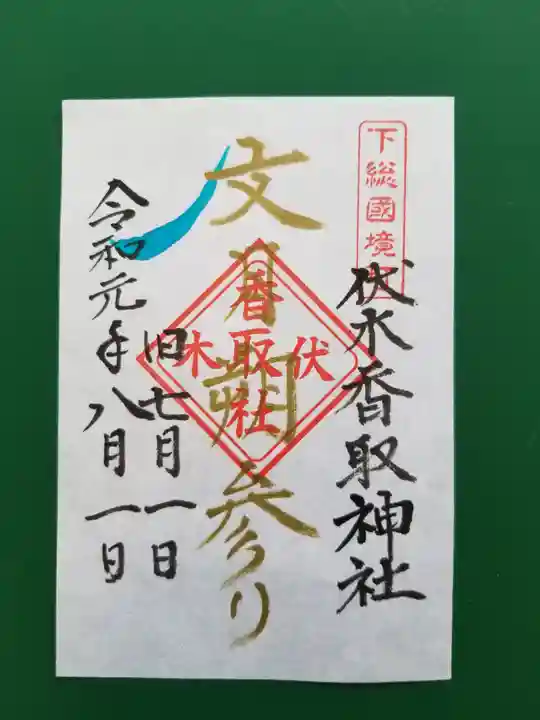 下総國境町
伏木香取神社
文月朔参り
伏木
香取社
旧七月一日
令和元年八月一日